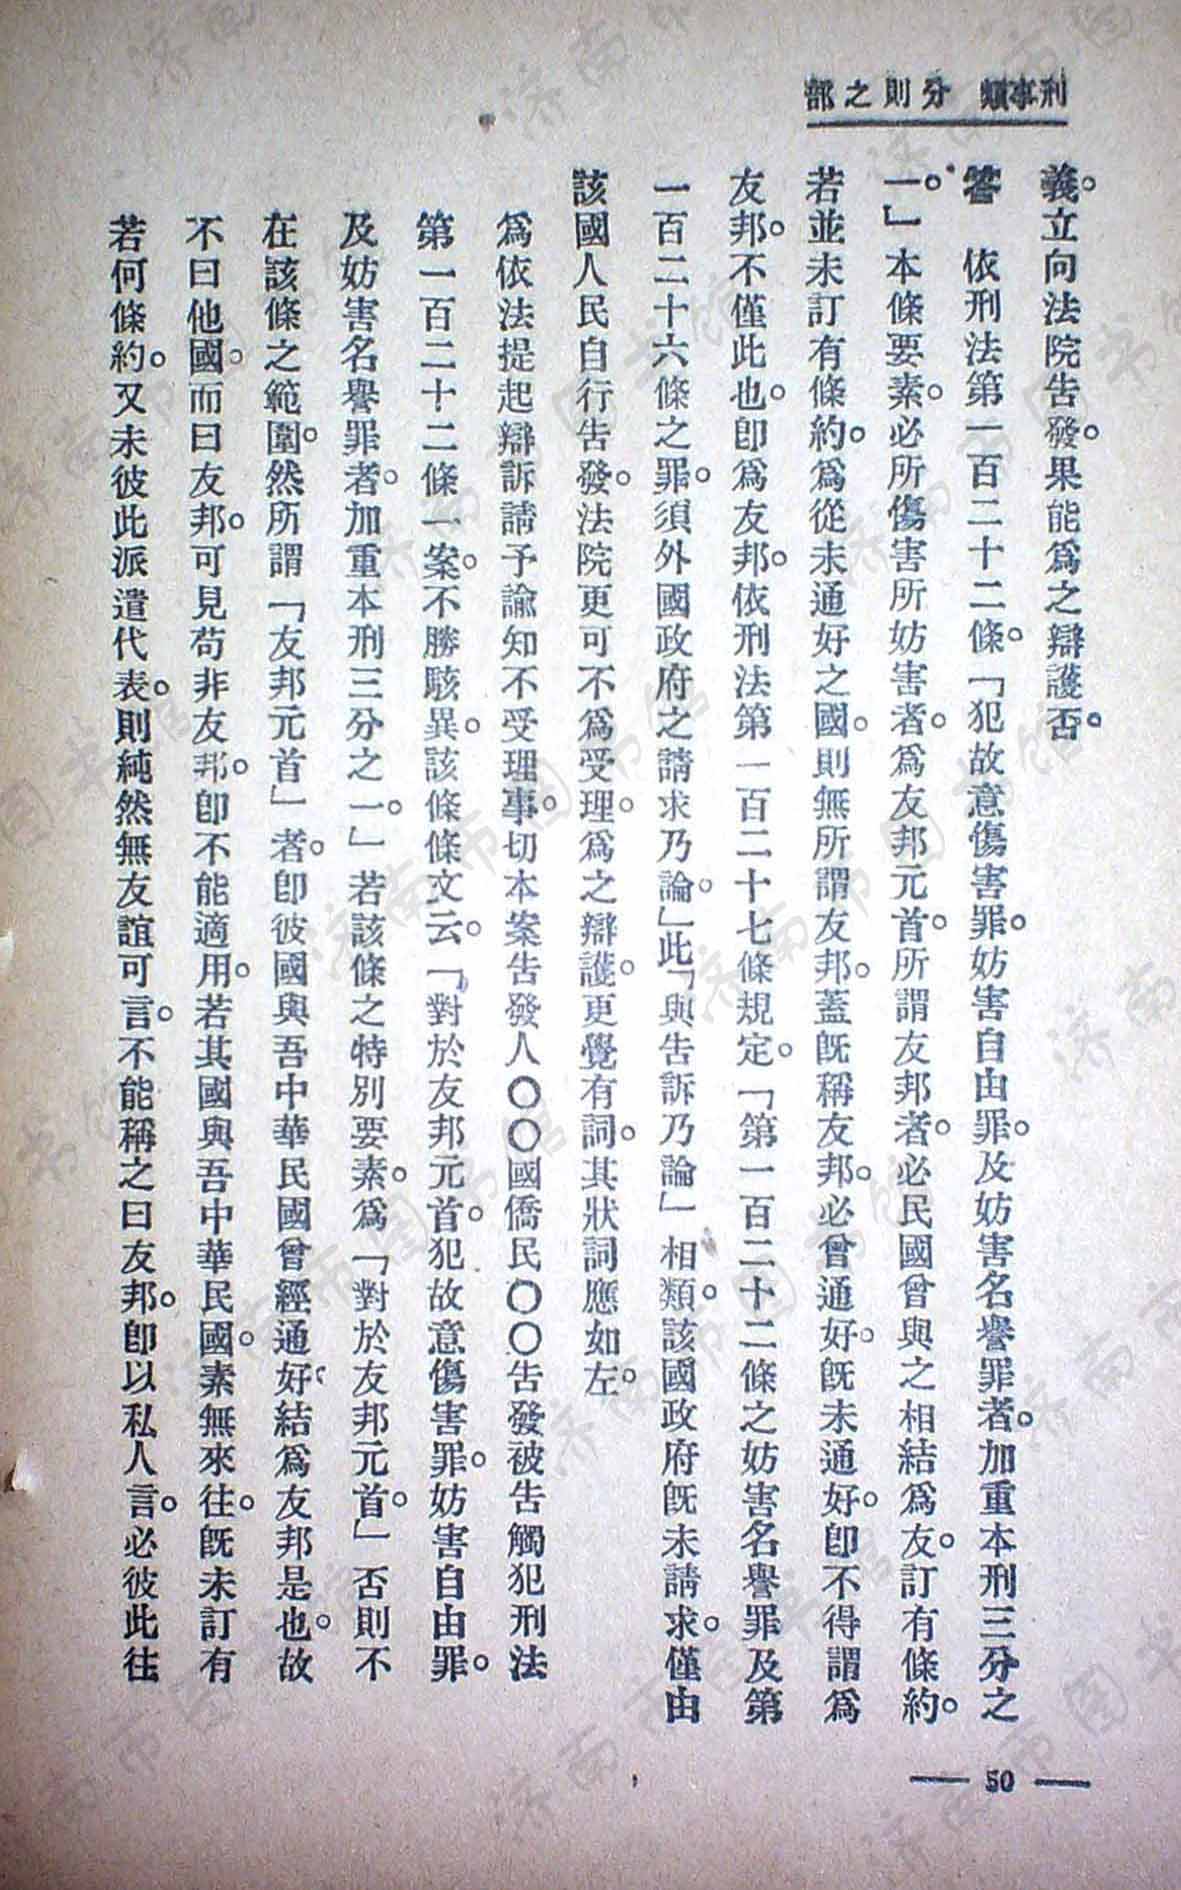 刑事類　分則之部
義。立向法院告發。果能爲之辯護否。
答　依刑法第一百二十二條。「犯故意傷害罪。妨害自由罪。及妨害名譽罪者。加重本刑三分之
一。」本條要素。必所傷害所妨害者。爲友邦元首。所謂友邦者。必民國曾與之相結爲友。訂有條約。
若並未訂有條約。爲從未通好之國。則無所謂友邦。蓋旣稱友邦。必曾通好。旣未通好。卽不得謂爲
友邦。不僅此也。卽爲友邦。依刑法第一百二十七條規定。「第一百二十二條之妨害名譽罪及第
一百二十六條之罪。須外國政府之請求乃論。」此「與告訴乃論」相類。該國政府旣未請求。僅由
該國人民自行告發。法院更可不爲受理。爲之辯護。更覺有詞。其狀詞應如左。
爲依法提起辯訴請予諭知不受理事。切本案告發人〇〇國僑民〇〇告發被告觸犯刑法
第一百二十二條一案。不勝駭異。該條條文云。「對於友邦元首。犯故意傷害罪。妨害自由罪。
及妨害名譽罪者。加重本刑三分之一。」若該條之特別要素。爲「對於友邦元首。」否則不
在該條之範圍。然所謂「友邦元首」者。卽彼國與吾中華民國曾經通好。結爲友邦是也。故
不曰他國。而曰友邦。可見苟非友邦。卽不能適用。若其國與吾中華民國。素無來往。旣未訂有
若何條約。又未彼此派遣代表。則純然無友誼可言。不能稱之曰友邦。卽以私人言。必彼此往
— 50 —
济南市图书馆